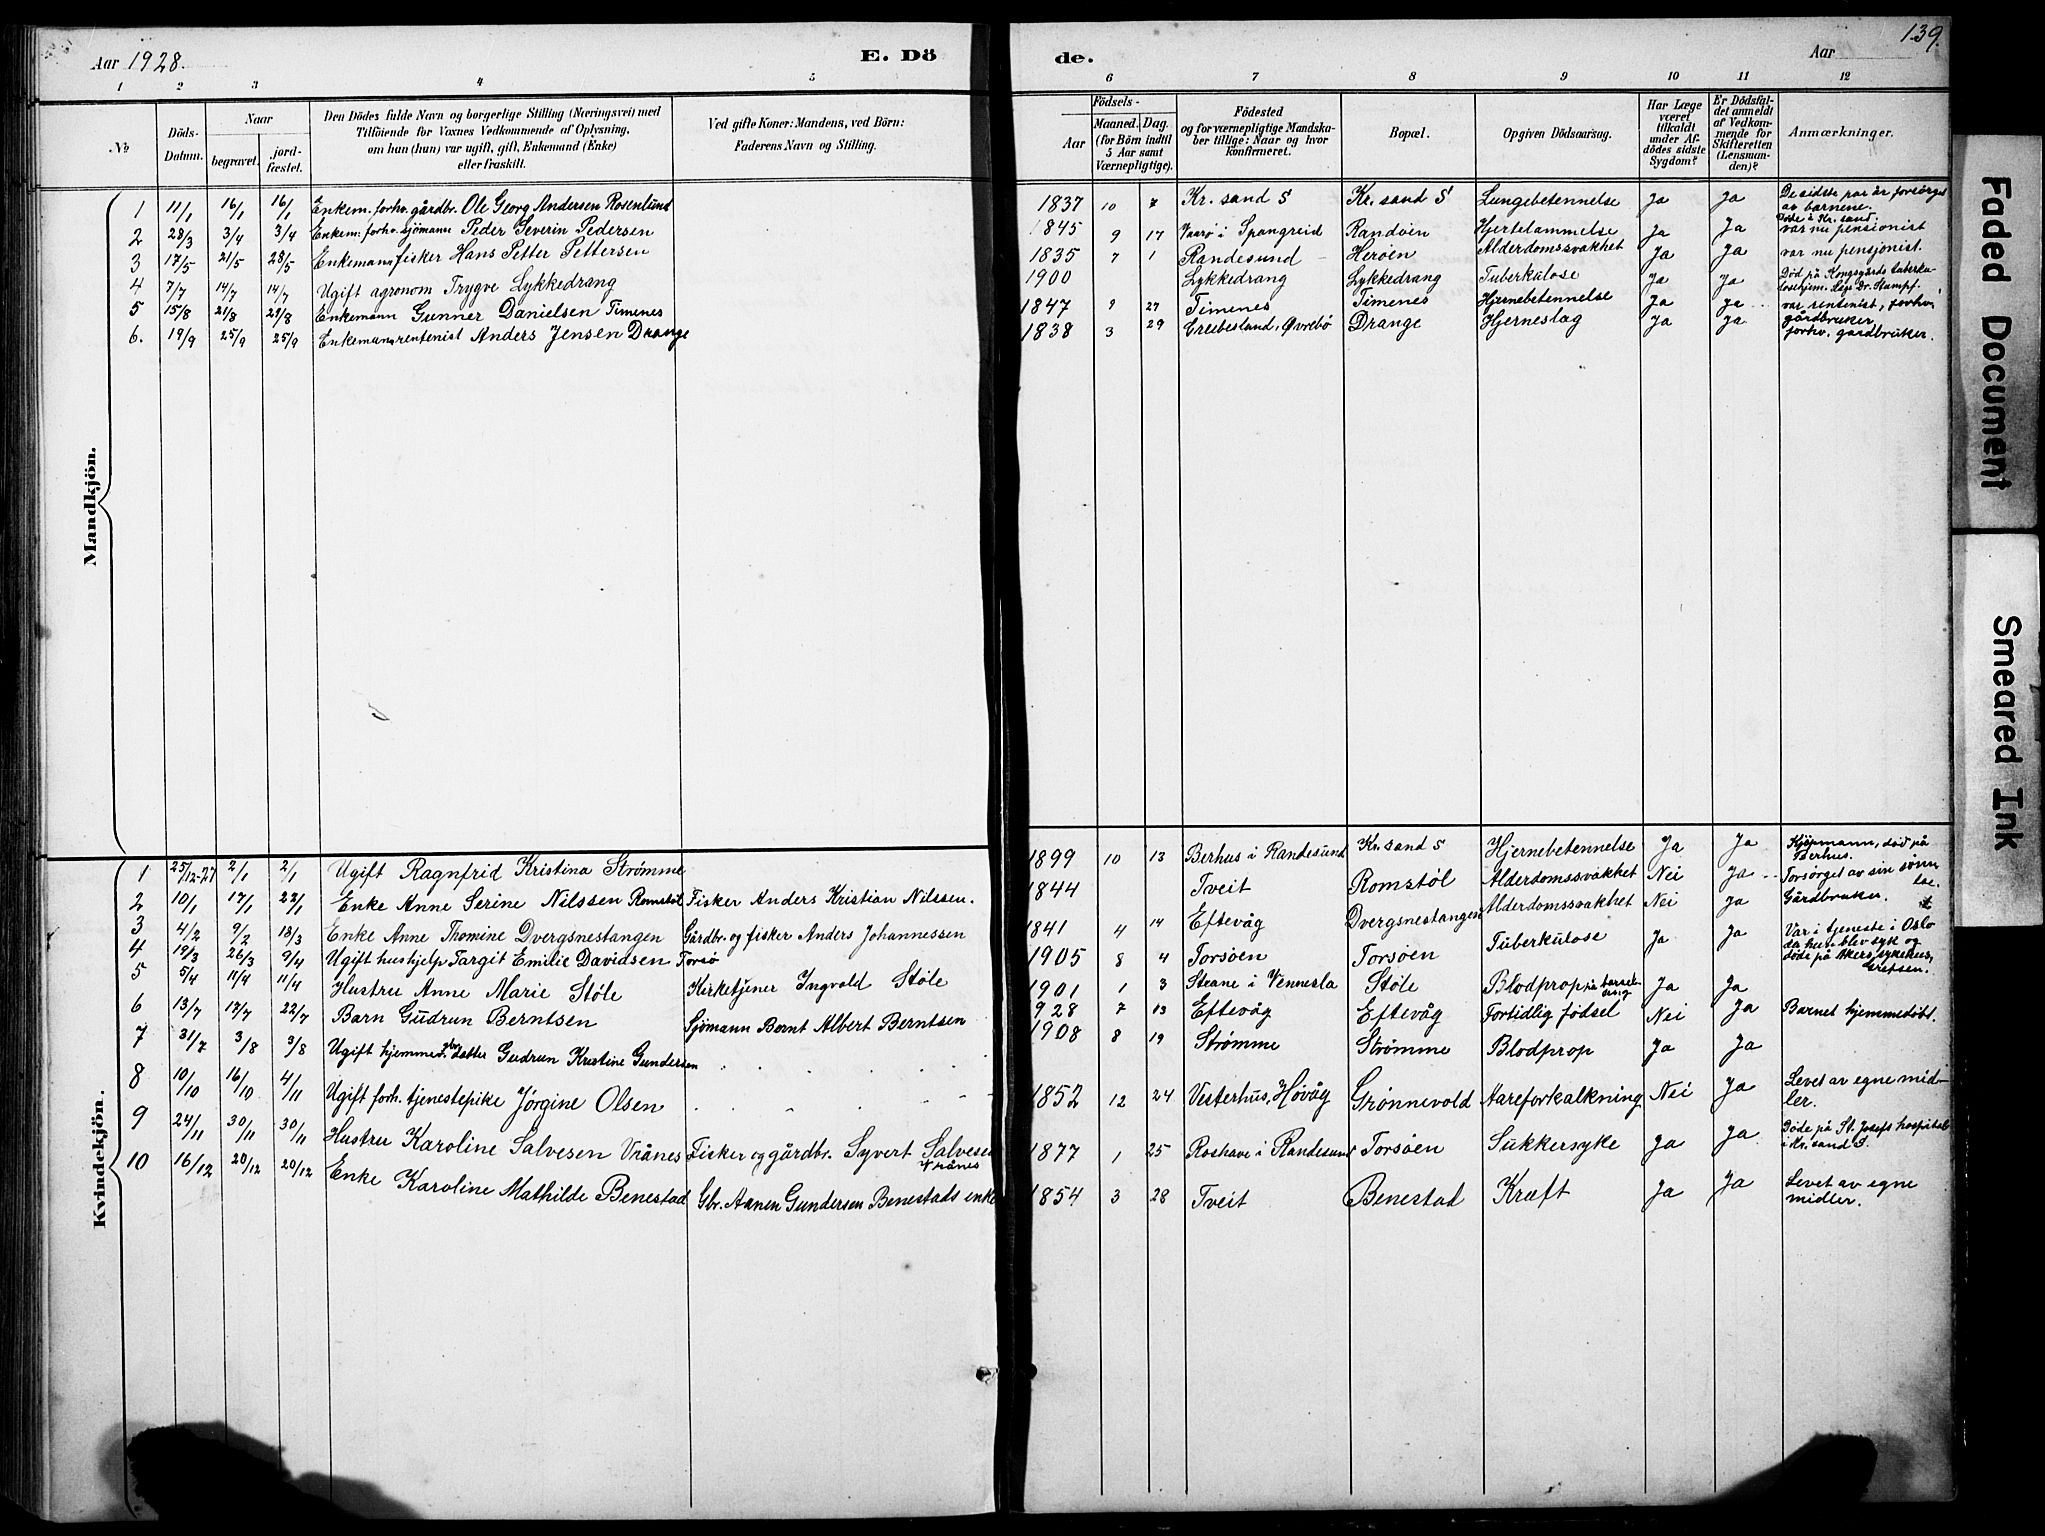 Aar 1928.
E. Dö
de.
Aar
139.
1 2 3 4 5
6 7 8 9 10 11 12
No
Döds-Datum.
Naar
begravet.
jord-fæstet.
Den Dödes fulde Navn og borgerlige Stilling (Næringsvei) med
Tilföiende for Voxnes Vedkommende af Oplysning,
om han (hun) var ugift, gift, Enkemand (Enke)
eller fraskilt.
Ved gifte Koner: Mandens, ved Börn:
Faderens Navn og Stilling.
Födsels-
Aar
Maaned. Dag.
(for Börn indtil
5 Aar samt
Værnepligtige).
Födested
og for værnepligtige Mandska-
ber tillige: Naar og hvor
konfirmeret.
Bopæl.
Opgiven Dödsaarsag.
Har Læge
været
tilkaldt
under Af-
dödes sidste
Sygdom?
Er Dödsfal-
det anmeldt
af Vedkom-
mende for
Skifteretten
(Lensman-
den)?
Anmærkninger.
Mandkjön.
1 11/1 16/1 16/1 Enkem. forhv. gårdbr. Ole Georg Andersen Rosenlund 1837 10 7 Kr. sand S Kr. sand S Lungebetennelse Ja Ja De sidste par år forsörget
av barnene.
Döde i Kr. sand.
2 28/3 3/4 3/4 Enkem. forhv. sjömann Peder Severin Pedersen 1845 9 17 Vaarö i Spangreid Randöen Hjertelammelse Ja Ja var nu pensionist
3 17/5 21/5 28/5 Enkemann, fisker Hans Petter Pettersen 1835 7 1 Randesund Heröen Alderdomssvakhet Ja Ja var nu pensjonist.
4 7/7 14/7 14/7 Ugift agronom Trygve Lykkedrang 1900 Lykkedrang Lykkedrang Tuberkulose Ja Ja Död på Kongsgårds tuberku-
losehjem.
5 15/8 21/8 21/8 Enkemann Gunner Danielsen Timenes 1847 9 27 Timenes Timenes Hjernebetennelse Ja Ja var rentenist, forhv.
gårdbruker
6. 19/9 25/9 25/9 Enkemann, rentenist Anders Jensen Drange 1838 3 29 Øvrebö Drange Hjerneslag Ja Ja forhv. gårdbruker.
Kvindekjön.
1 25/12-27 2/1 2/1 Ugift Ragnfrid Kristina Strømme 1899 10 13 Berhus i Randesund Kr. sand S Hjernebetennelse Ja Ja död på
Berhus.
2 10/1 17/1 22/1 Enke Anne Serine Nilssen Romstøl Fisker Anders Kristian Nilssen. 1844 Tveit Romstøl Alderdomssvakhet Nei Ja Forsörget av sin sönn
3 4/2 9/2 18/3 Enke Anne Thomine Dvergsnestangen Gårdbr. og fisker Anders Johannessen 1841 4 14 Eftevåg Dvergsnestangen Alderdomssvakhet Nei Ja Gårdbruker.
4 19/3 26/3 9/4 Ugift hushjelp Targit Emilie Davidsen Torsö 1905 8 4 Torsöen Torsöen Tuberkulose Ja Ja Var i tjeneste i Oslo
da hun blev syk og
döde på Akers sykehus,
Grefsen.
5 5/4 11/4 11/4 Hustru Anne Marie Støle Kirketjener Ingvald Støle 1901 1 3 Strane i Vennesla Støle Blodprop på barsel-
seng Ja Ja
6 13/7 17/7 22/7 Barn Gudrun Berntsen Sjömann Bernt Albert Berntsen 928 7 13 Eftevåg Eftevåg Fortidlig fødsel Nei Ja Barnet hjemmedöbt.
7 31/7 3/8 3/8 Ugift hjemmev. datter Gudrun Kristine Gundersen 1908 8 19 Strømme Strømme Blodprop Ja Ja
8 10/10 16/10 4/11 Ugift forh. tjenestepike Jörgine Olsen 1852 12 24 Vesterhus, Høvåg Grønnevold Aareforkalkning Nei Ja Levet av egne mid-
ler.
9 24/11 30/11 30/11 Hustru Karoline Salvesen Vrånes Fisker og gårdbr. Syvert Salvesen
Vrånes 1877 1 25 Roshave i Randesund Torsöen Sukkersyke Ja Ja Döde på St. Josefs hospital
i Kr. sand S.
10 16/12 20/12 20/12 Enke Karoline Mathilde Benestad Gbr. Aanen Gundersen Benestads enke 1854 3 28 Tveit Benestad Kræft Ja Ja Levet av egne
midler.
Faded Document
Smeared Ink